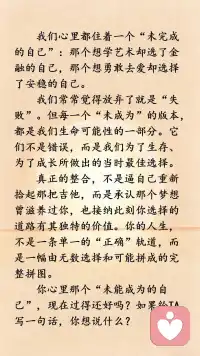 我们心里都住着一个“未完成
的自己”：那个想学艺术却选了金
融的自己，那个想勇敢去爱却选择
了安稳的自己。
我们常常觉得放弃了就是“失
败”。但每一个“未成为”的版本，
都是我们生命可能性的一部分。它
们不是错误，而是我们为了生存、
为了成长所做出的当时最佳选择。
真正的整合，不是逼自己重新
拾起那把吉他，而是承认那个梦想
曾滋养过你，也接纳此刻你选择的
道路有其独特的价值。你的人生，
不是一条单一的“正确”轨道，而
是一幅由无数选择和可能拼成的完
整拼图。
你心里那个“未能成为的自
己”，现在过得还好吗？如果给TA
写一句话，你想说什么？